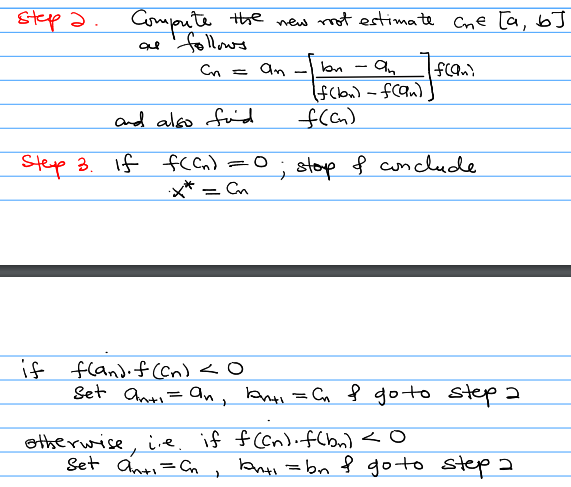 Step 2. Compute the new root estimate cn ∈ [a, b]
as follows
cn = an - [ (bn - an) / (f(bn) - f(an)) ] f(an)
and also find f(cn)
Step 3. If f(cn) = 0 ; stop & conclude
x* = cn
if f(an).f(cn) < 0
Set an+1 = an, bn+1 = cn & go to step 2
otherwise, i.e. if f(cn).f(bn) < 0
Set an+1 = cn, bn+1 = bn & go to step 2